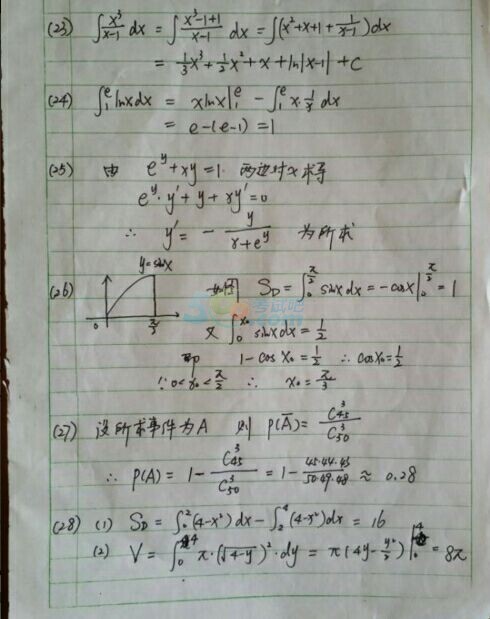 (23) ∫ x³/(x-1) dx = ∫ (x³-1+1)/(x-1) dx = ∫(x²+x+1+ 1/(x-1))dx
= 1/3 x³ + 1/2 x² + x + ln|x-1| + C
(24) ∫₁ᵉ lnx dx = xlnx|₁ᵉ - ∫₁ᵉ x·1/x dx
= e-(e-1) = 1
(25) 由 eʸ+xy=1. 两边对x求导
eʸ·y'+y+xy'=0
∴ y' = - y/(x+eʸ) 为所求
y=sinx
(26) 如图 S_D = ∫₀^(π/2) sinx dx = -cosx|₀^(π/2) = 1
0 π/2
又 ∫₀^(x₀) sinx dx = 1/2
即 1-cos x₀ = 1/2 ∴ cosx₀ = 1/2
∵ 0<x₀<π/2 ∴ x₀ = π/3
(27) 设所求事件为A 则 P(Ā) = C₄₅³/C₅₀³
∴ P(A) = 1 - C₄₅³/C₅₀³ = 1 - 45·44·43/50·49·48 ≈ 0.28
(28) (1) S_D = ∫₀²(4-x²)dx - ∫₂⁴(4-x²)dx = 16
(2) V = ∫₀⁴ π·(√(4-y))²·dy = π(4y - y²/2)|₀⁴ = 8π